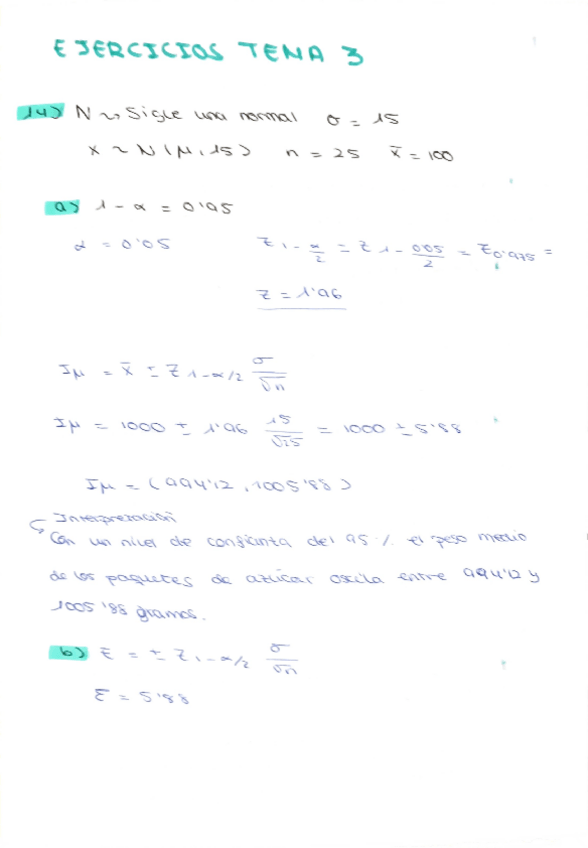 EJERCICIOS TEMA 3
14) N ~> Sigue una normal σ = 15
x ~ N(μ, 15) n = 25 x̄ = 100
a) 1 - α = 0'95
α = 0'05 Z 1 - α/2 = Z 1 - 0'05/2 = Z0'975 =
Z = 1'96
Iμ = x̄ ± Z 1-α/2 σ/√n
Iμ = 1000 ± 1'96 15/√25 = 1000 ± 5'88
Iμ = (994'12, 1005'88)
Interpretación
Con un nivel de confianza del 95 % el peso medio
de los paquetes de azúcar oscila entre 994'12 y
1005'88 gramos.
b) E = ± Z 1-α/2 σ/√n
E = 5'88